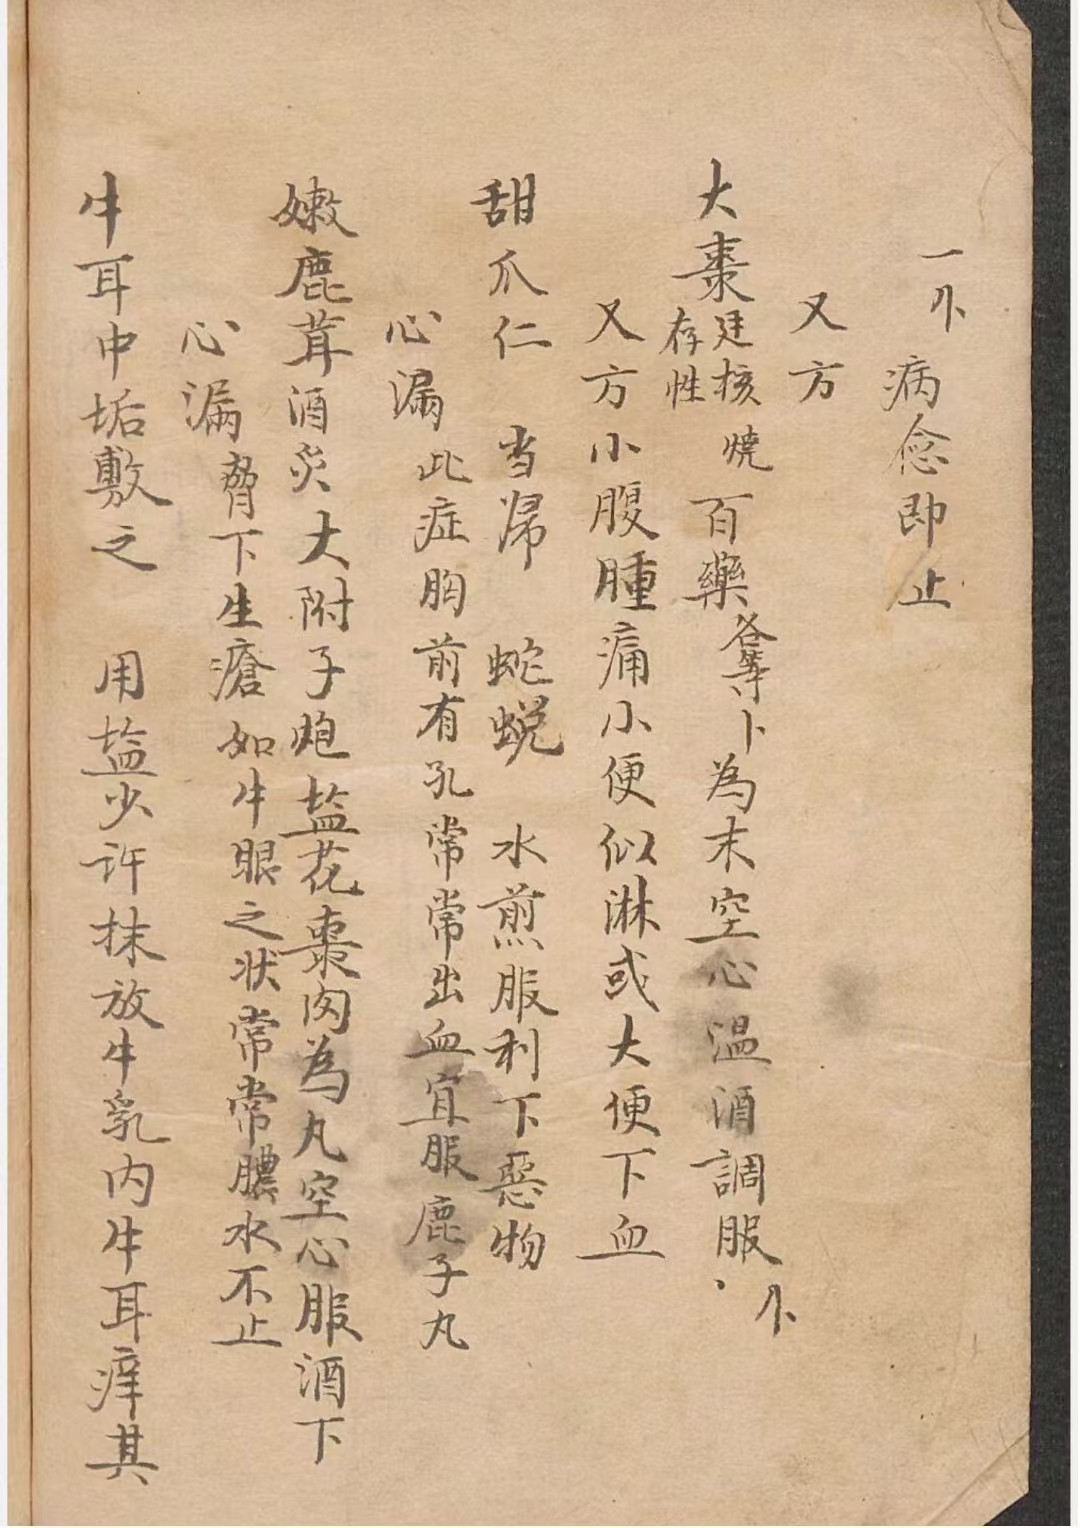 一卜 病愈即止
又方
大棗廷核燒存性 百藥各等卜為末空心温酒調服、卜
又方小腹腫痛小便似淋或大便下血
甜瓜仁 当㷌 蛇蜕 水煎服利下惡物
心漏此症胸前有孔常常出血宜服鹿子丸
嫩鹿茸酒炙大附子炮盐花棗肉為丸空心服酒下
心漏脅下生瘡如牛眼之状常常膿水不止
牛耳中垢敷之 用盐少许抹放牛乳内牛耳痒其